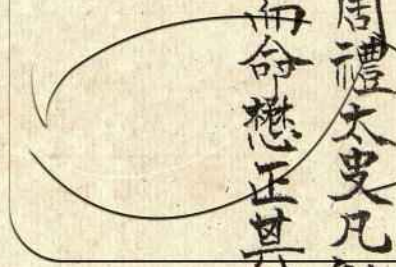 周禮太史凡
而命懋正其